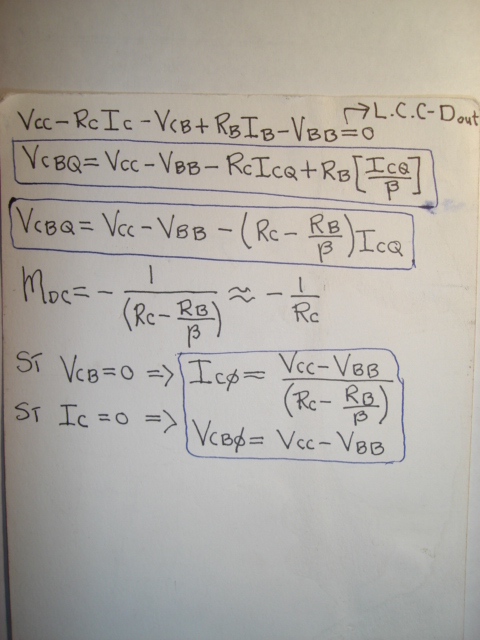 Vcc - RcIc - VCB + RBIB - VBB = 0 → L.C.C-Dout
VCBQ = Vcc - VBB - RcICQ + RB[ICQ/β]
VCBQ = Vcc - VBB - (Rc - RB/β)ICQ
MDC = - 1/(Rc - RB/β) ≈ - 1/Rc
SI VCB = 0 => ICφ = (Vcc - VBB)/(Rc - RB/β)
SI Ic = 0 => VCBφ = Vcc - VBB